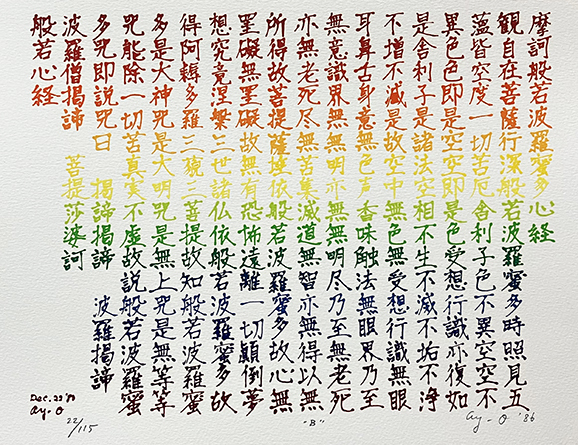 摩訶般若波羅蜜多心経
観自在菩薩行深般若波羅蜜多時照見五
蘊皆空度一切苦厄舎利子色不異空空不
異色色即是空空即是色受想行識亦復如
是舎利子是諸法空相不生不滅不垢不浄
不増不減是故空中無色無受想行識無眼
耳鼻舌身意無色声香味触法無眼界乃至
無意識界無無明亦無無明尽乃至無老死
亦無老死尽無苦集滅道無智亦無得以無
所得故菩提薩埵依般若波羅蜜多故心無
罣礙無罣礙故無有恐怖遠離一切顛倒夢
想究竟涅槃三世諸仏依般若波羅蜜多故
得阿耨多羅三藐三菩提故知般若波羅蜜
多是大神咒是大明咒是無上咒是無等等
咒能除一切苦真実不虚故説般若波羅蜜
多咒即説咒曰 揭諦揭諦 波羅揭諦
波羅僧揭諦 菩提莎婆訶
般若心経
Ay-O
22/115
"B"
ay-O '86